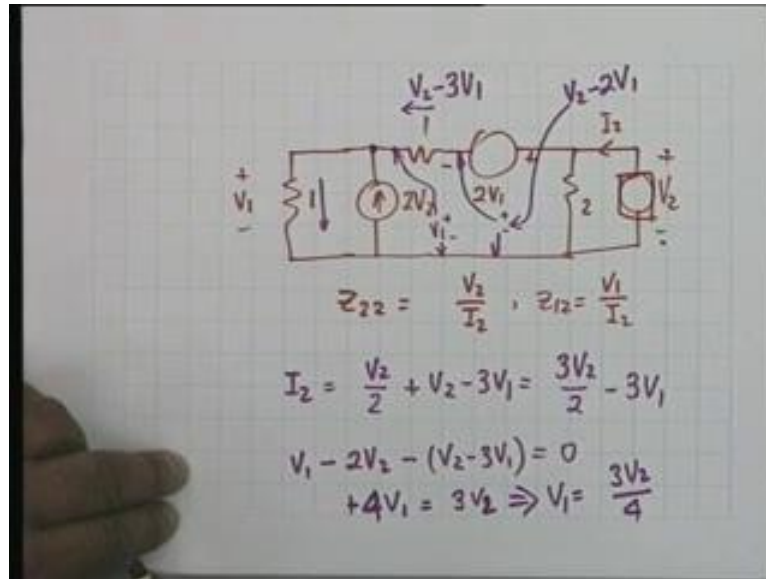 V₂-3V₁
V₂-2V₁
←
1
I₂
+
V₁
-
1
2V₂
-
2V₁
+
2
+
V₂
-
V₁
+
-
+
-
Z₂₂ = V₂/I₂ , Z₁₂ = V₁/I₂
I₂ = V₂/2 + V₂-3V₁ = 3V₂/2 - 3V₁
V₁ - 2V₂ - (V₂-3V₁) = 0
+4V₁ = 3V₂ ⇒ V₁ = 3V₂/4